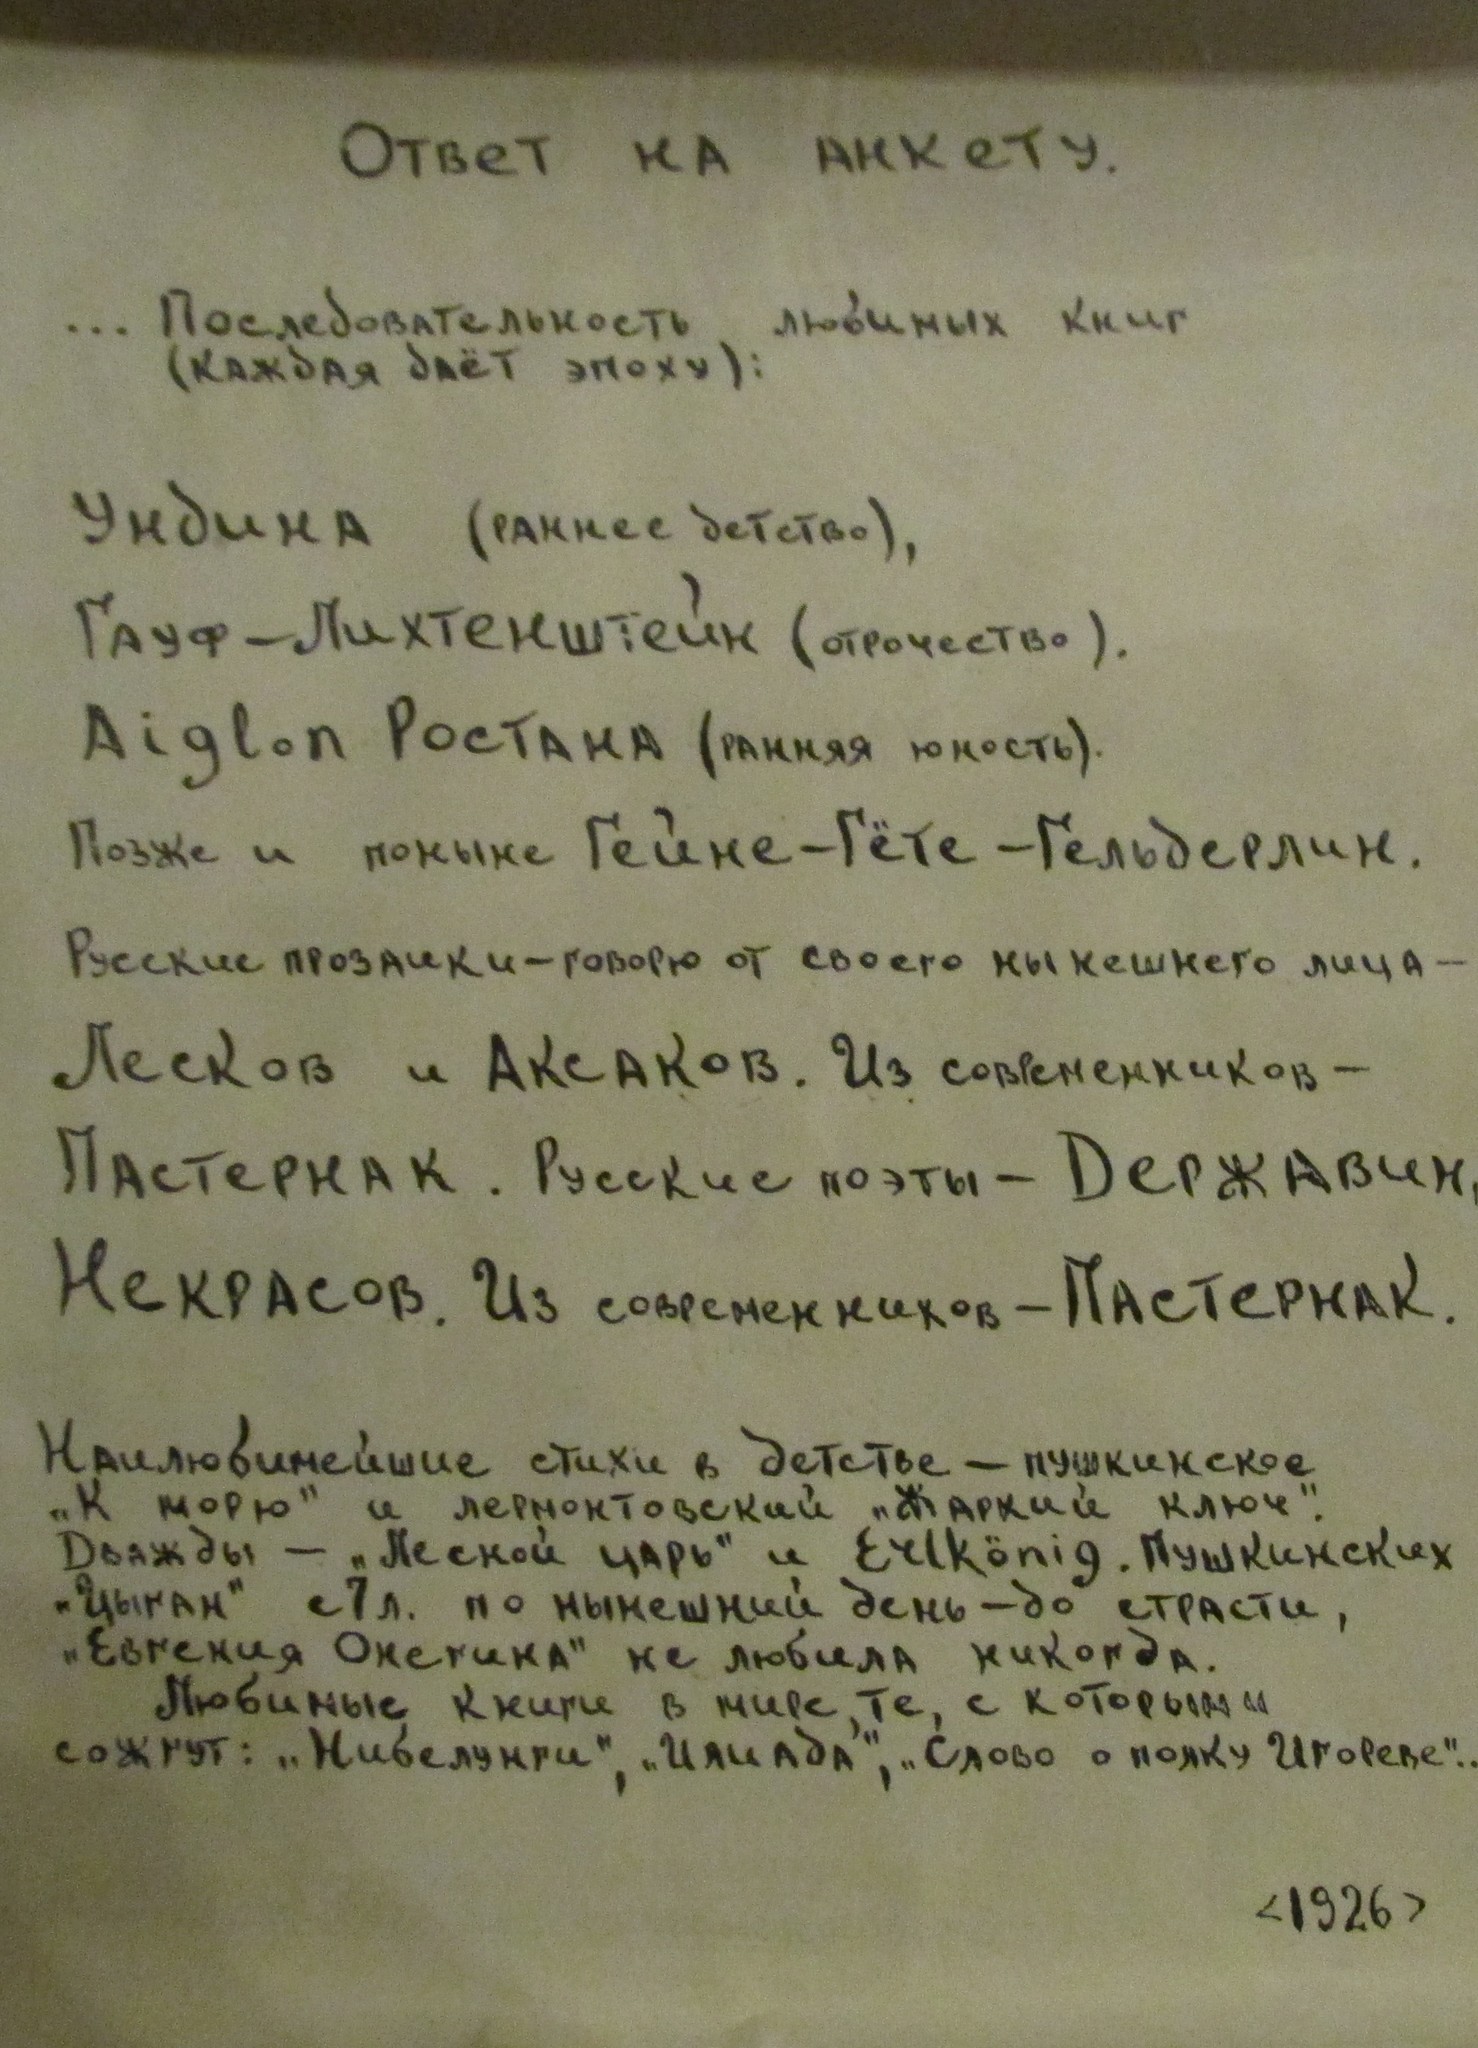 Ответ на анкету.
... Последовательность любимых книг
(каждая даёт эпоху):
Ундина (раннее детство),
Гауф – Лихтенштейн (отрочество).
Aiglon Ростана (ранняя юность).
Позже и поныне Гейне – Гёте – Гельдерлин.
Русские прозаики – говорю от своего нынешнего лица –
Лесков и Аксаков. Из современников –
Пастернак. Русские поэты – Державин,
Некрасов. Из современников – Пастернак.
Наилюбимейшие стихи в детстве – пушкинское
„К морю" и лермонтовский „Жаркий ключ".
Дважды – „Лесной царь" и Erlkönig. Пушкинских
„Цыган" с 7 л. по нынешний день – до страсти,
„Евгения Онегина" не любила никогда.
Любимые книги в мире, те, с которыми
сожгут: „Нибелунги", „Илиада", „Слово о полку Игореве"..
<1926>